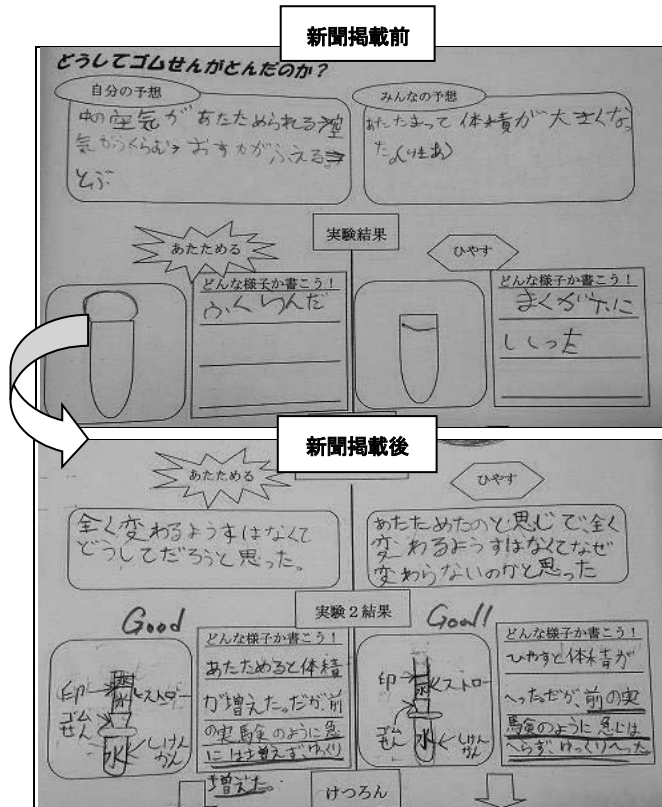 新聞掲載前
どうしてゴムせんがとんだのか？
自分の予想
中の空気があたためられる→空
気がふくらむ→おす力がふえる→
とぶ
みんなの予想
あたたまって体積が大きくなっ
た。
実験結果
あたためる
どんな様子か書こう！
ふくらんだ
ひやす
どんな様子か書こう！
まくが下に
新聞掲載後
あたためる
全く変わるようすはなくて
どうしてだろうと思った。
ひやす
あたためたのと思じで全く
変わるようすはなくてなぜ
変わらないのかと思った
実験２結果
Good
印
水
ストロー
ゴム
せん
水
しけん
かん
どんな様子か書こう！
あたためると体積
が増えた。だが、前
の実験のように急
には増えず、ゆっくり
増えた。
Good!!
印
水
ストロー
ゴム
せん
水
しけん
かん
どんな様子か書こう！
ひやすと体積が
へった。だが、前の実
験のように急には
へらず、ゆっくりへった
けつろん